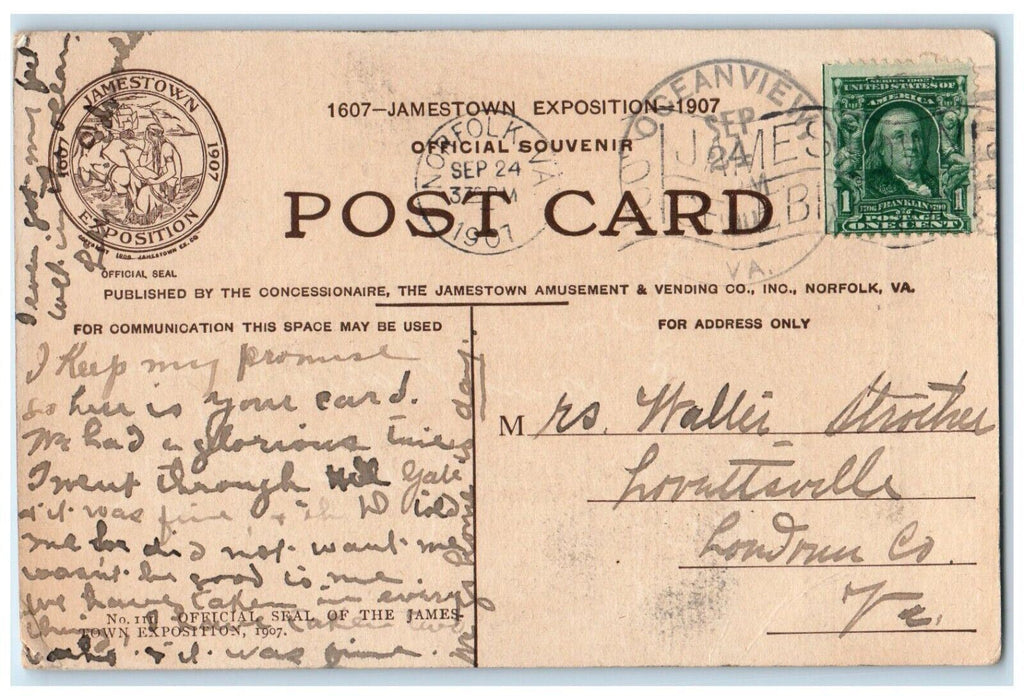 JAMESTOWN
1607
1907
EXPOSITION
OFFICIAL SEAL
1607—JAMESTOWN EXPOSITION—1907
OFFICIAL SOUVENIR
POST CARD
NORFOLK VA
SEP 24
PM
1907
OCEANVIEW
SEP
24
VA.
SERIES 1902
UNITED STATES OF
AMERICA
1706 FRANKLIN 1790
1 1
POSTAGE
ONE CENT
PUBLISHED BY THE CONCESSIONAIRE, THE JAMESTOWN AMUSEMENT & VENDING CO., INC., NORFOLK, VA.
FOR COMMUNICATION THIS SPACE MAY BE USED
FOR ADDRESS ONLY
I Keep my promise
so here is your card.
We had a glorious time
I went through Hell Gate
& it was fine, told
me he did not want me
wasn't he good to me.
We have taken in every
thing
& it was fine.
We home day.
I even got my feet
wet in
No. 111. OFFICIAL SEAL OF THE JAMES-
TOWN EXPOSITION, 1907.
Mrs. Walter Strother
Lovettsville
Loudoun Co.
Va.